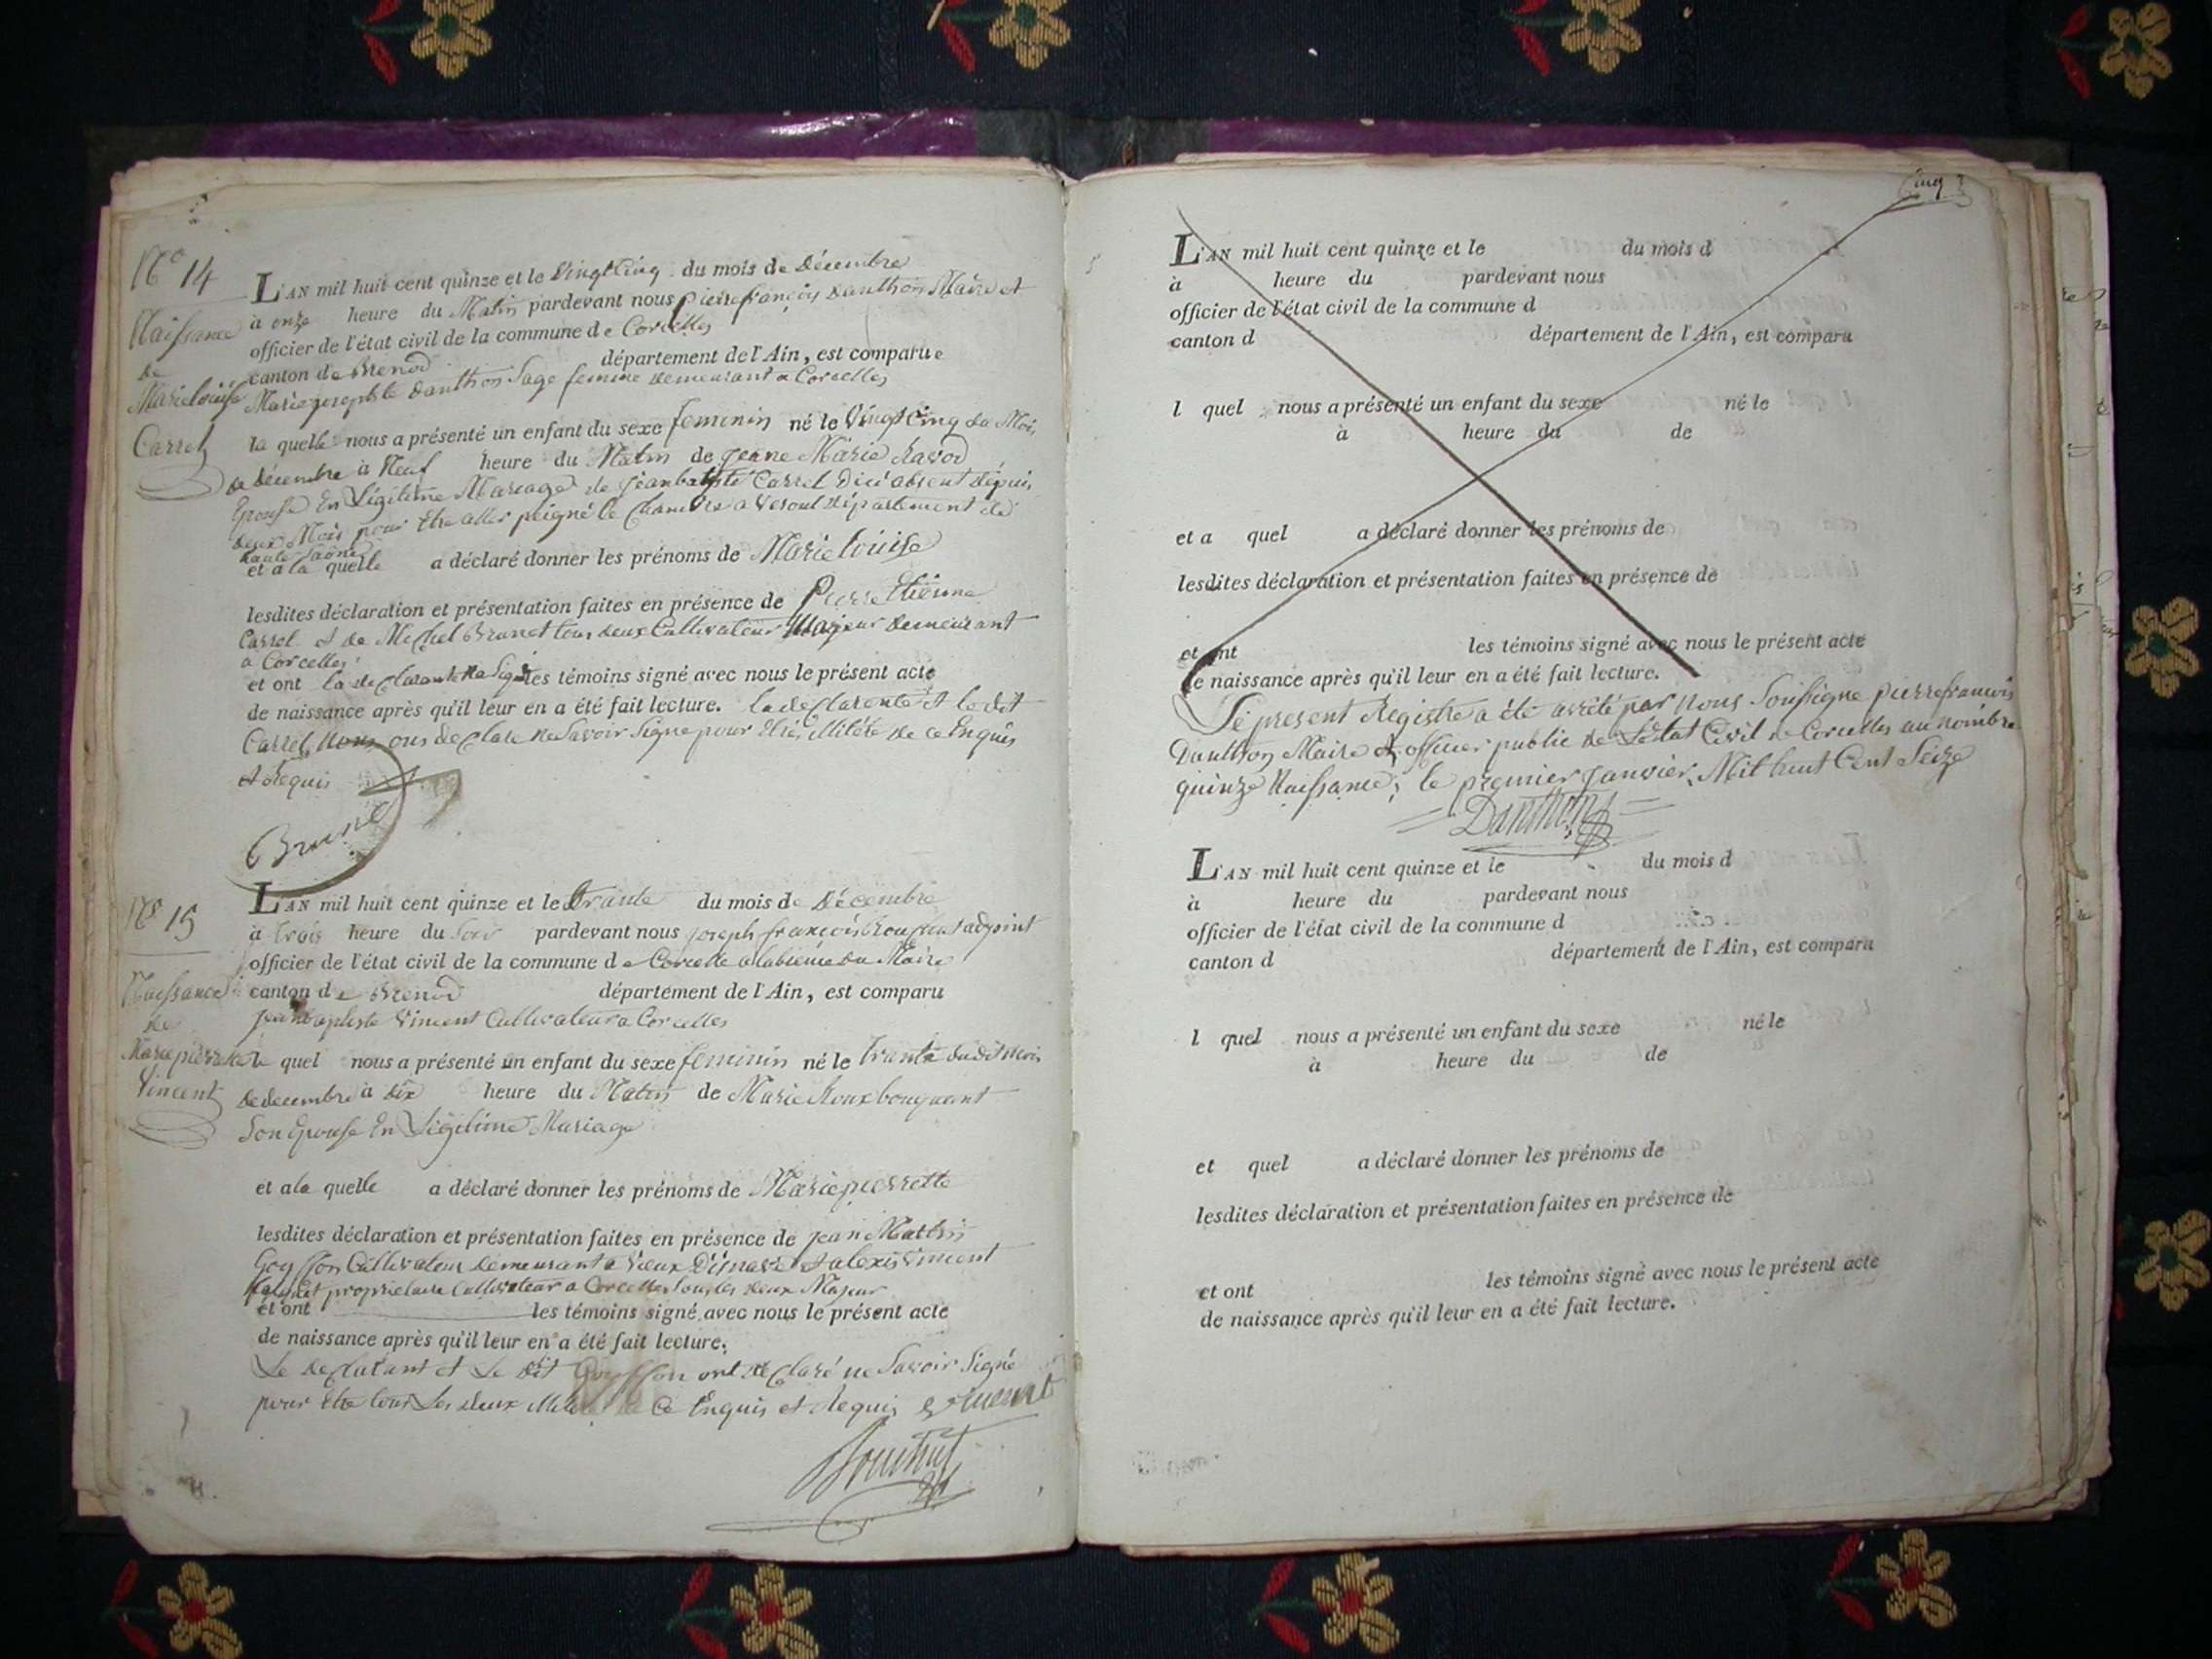 N.o 14
Naissance
de
Marie louise
Carrel
L'AN mil huit cent quinze et le Vingt Cinq du mois de Décembre
à onze heure du Matin pardevant nous pierre françois Danthon Maire et
officier de l'état civil de la commune de Corcelles
canton de Brenod département de l'Ain, est comparue
Marie josephte Danthon Sage femme demeurant a Corcelles
la quelle nous a présenté un enfant du sexe feminin né le Vingt Cinq du Mois
de décembre à Neuf heure du Matin de Jeanne Marie Ravod
Epouse En Légitime Mariage de jean baptiste Carrel Dici absent dépuis
deux Mois pour Etre aller peigné le Chanvre a Vesoul département de
haute Saône
et a la quelle a déclaré donner les prénoms de Marie louise
lesdites déclaration et présentation faites en présence de Pierre Etienne
Carrel et de Michel Brunet tous deux Cultivateur Majeur demeurant
a Corcelles
et ont la declarante les témoins signé avec nous le présent acte
de naissance après qu'il leur en a été fait lecture. la declarente et ledit
Carrel ont declaré ne Savoir Signe pour Etre illiteré de ce Enquis
et Requis
Brunet
N.o 15
Naissance
de
Marie pierrette
Vincent
L'AN mil huit cent quinze et le trante du mois de Décembre
à trois heure du Soir pardevant nous joseph françois adjoint
officier de l'état civil de la commune de Corcelle a labsence du Maire
canton de Brenod département de l'Ain, est comparu
jean baptiste Vincent Cultivateur a Corcelles
le quel nous a présenté un enfant du sexe feminin né le trante dudit mois
de decembre à dix heure du Matin de Marie Rouxbouquant
Son Epouse En Légitime Mariage
et a la quelle a déclaré donner les prénoms de Marie pierrette
lesdites déclaration et présentation faites en présence de jean
Goyffon Cultivateur demeurant a Vieux et alexis Vincent
proprietaire Cultivateur a Corcelles tous les deux Majeur
et ont les témoins signé avec nous le présent acte
de naissance après qu'il leur en a été fait lecture.
Le declarant et Le dit Goyffon ont declaré ne Savoir Signé
pour Etre tous Les deux de Ce Enquis et Requis
Cinq
L'AN mil huit cent quinze et le du mois d
à heure du pardevant nous
officier de l'état civil de la commune d
canton d département de l'Ain, est comparu
l quel nous a présenté un enfant du sexe né le
à heure du de
et a quel a déclaré donner les prénoms de
lesdites déclaration et présentation faites en présence de
et ont les témoins signé avec nous le présent acte
de naissance après qu'il leur en a été fait lecture.
Le present Registre a été arrêté par nous Soussigne pierre francois
Danthon Maire et officier public de L'etat Civil de Corcelles au nombre
quinze Naissance; le premier janvier Mil huit Cent Seize
Danthon
L'AN mil huit cent quinze et le du mois d
à heure du pardevant nous
officier de l'état civil de la commune d
canton d département de l'Ain, est comparu
l quel nous a présenté un enfant du sexe né le
à heure du de
et quel a déclaré donner les prénoms de
lesdites déclaration et présentation faites en présence de
et ont les témoins signé avec nous le présent acte
de naissance après qu'il leur en a été fait lecture.